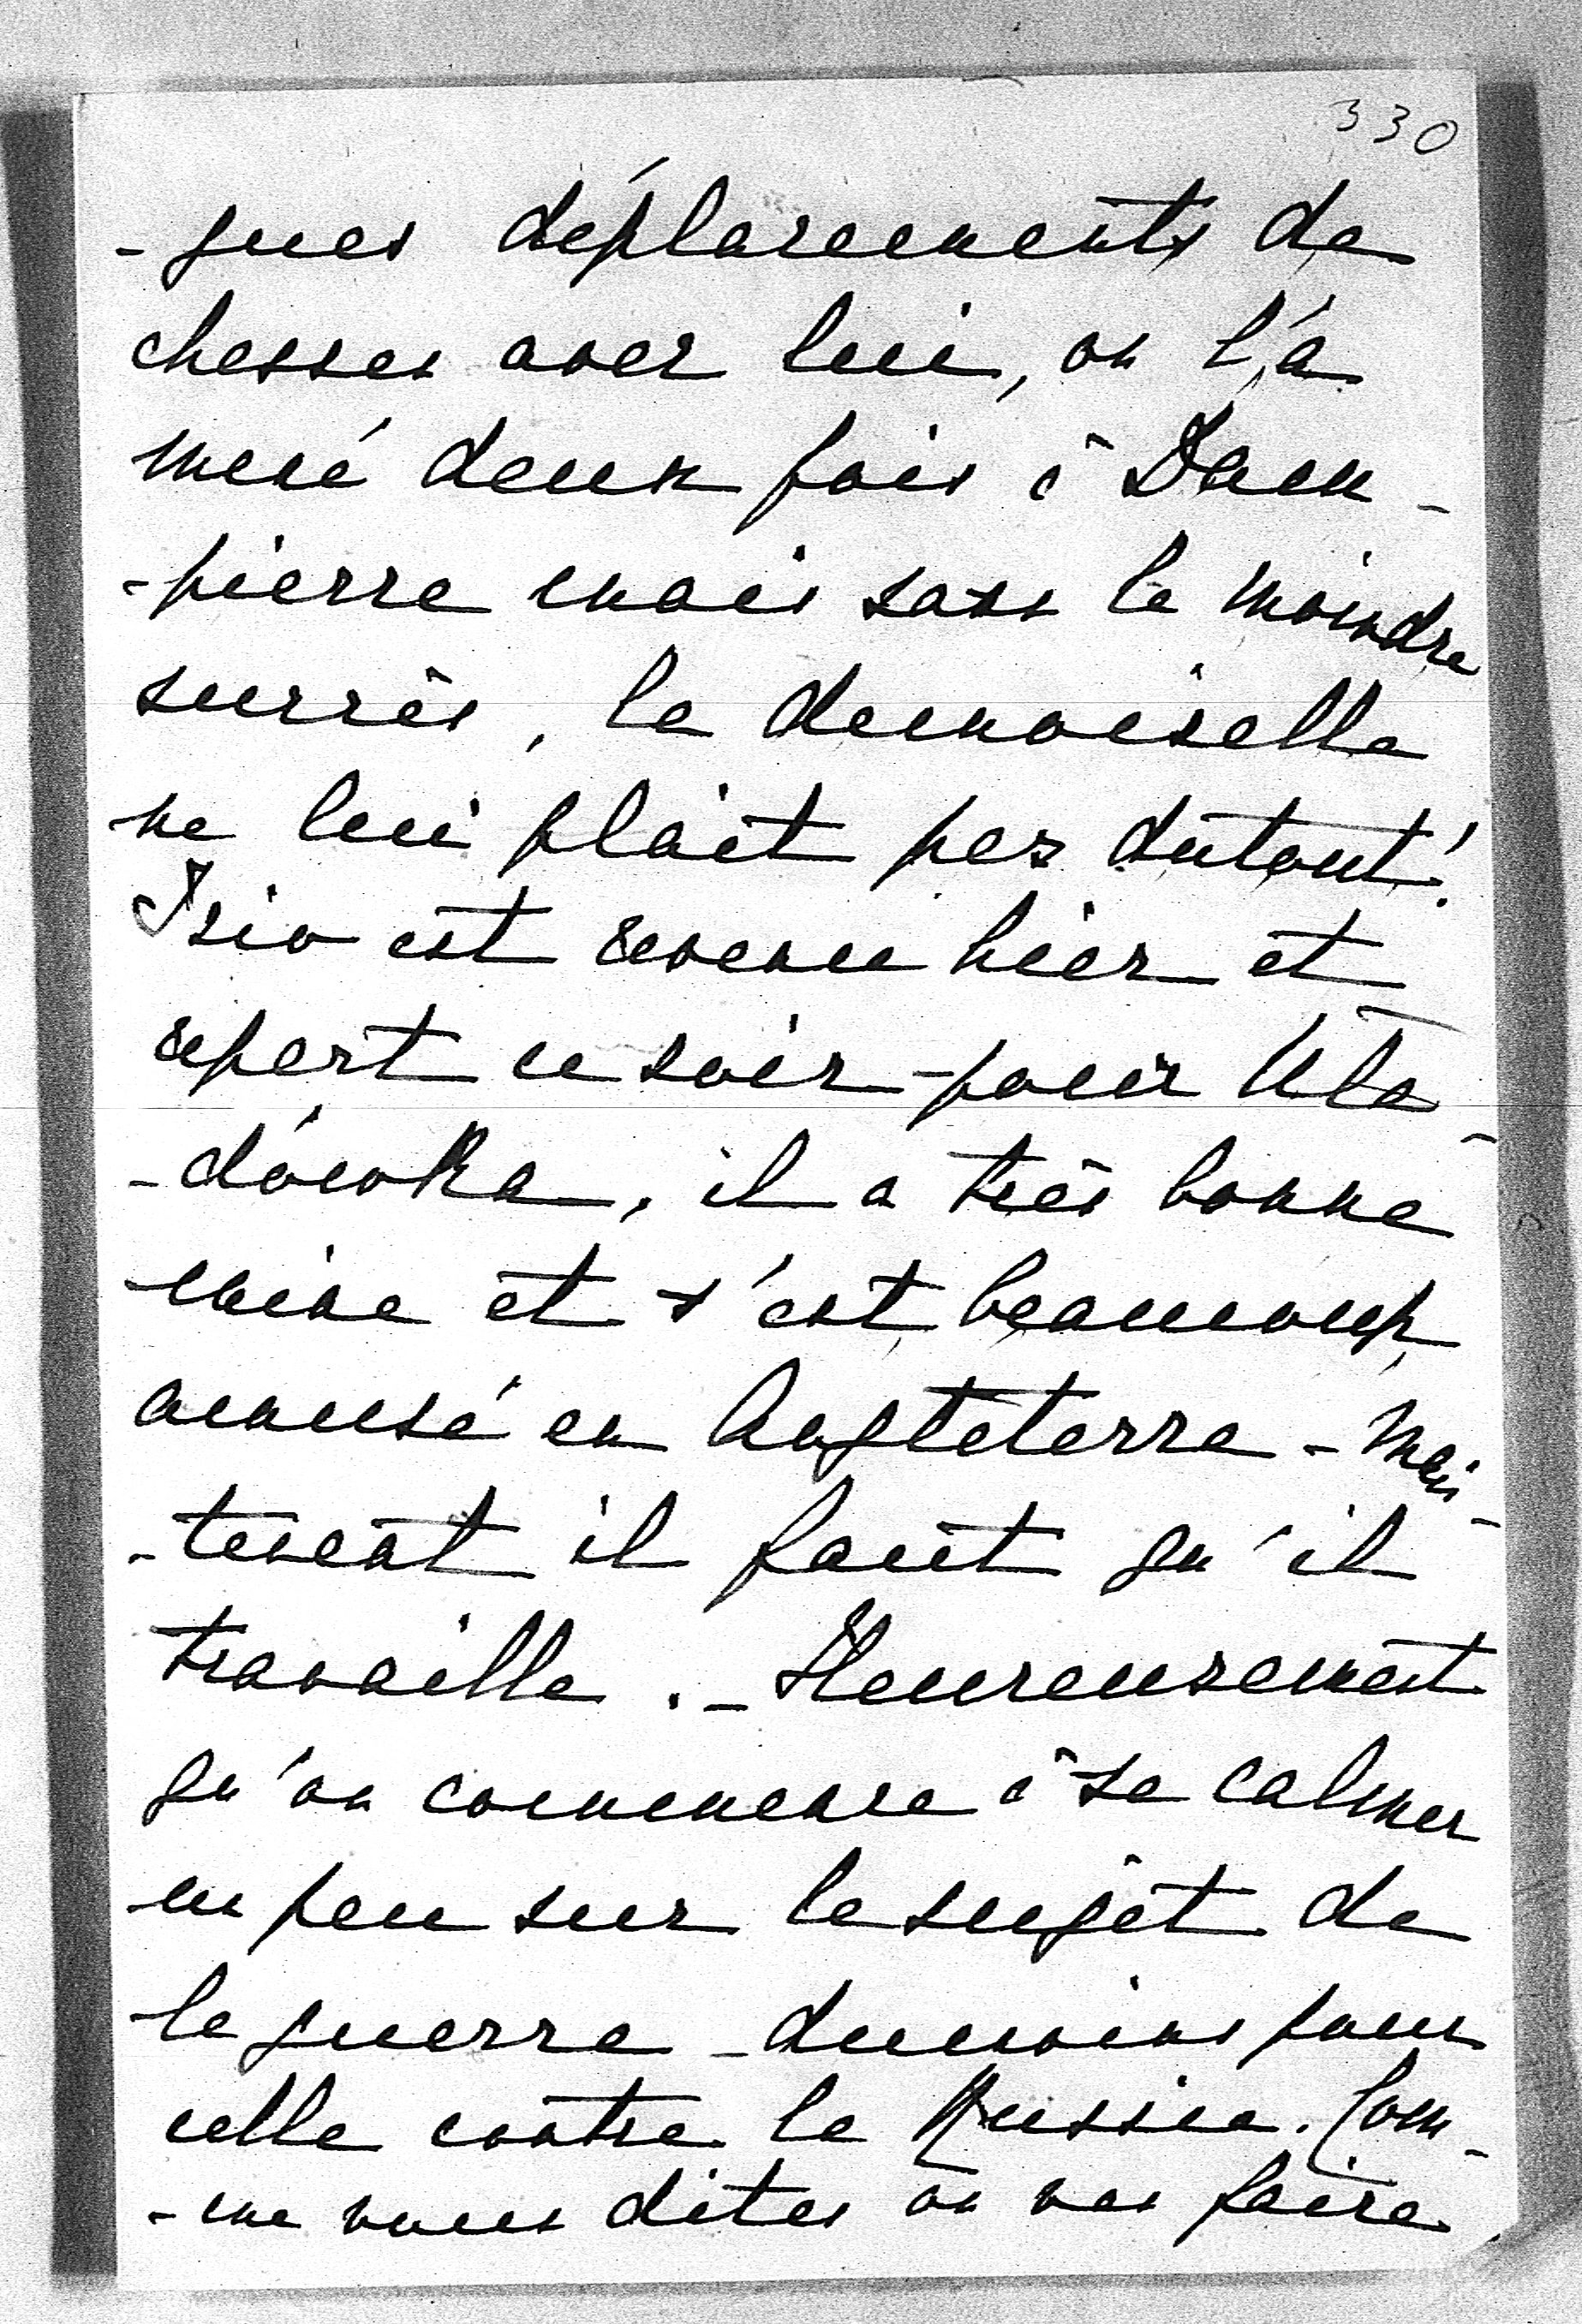 330
-gues déplacements de
chasses avec lui, on l'a
mené deux fois à Dam-
-pierre mais sans le moindre
succès, la demoiselle
ne lui plait pas dutout!
Isio est revenu hier et
repart ce soir pour Ula-
-dówka, il a très bonne
mine et s'est beaucoup
amusé en Angleterre - Main-
-tenant il faut qu'il
travaille. - Heureusement
qu'on commence à se calmer
un peu sur le sujet de
la guerre - dumoins pour
celle contre la Russie. Com-
-me vous dites on va faire